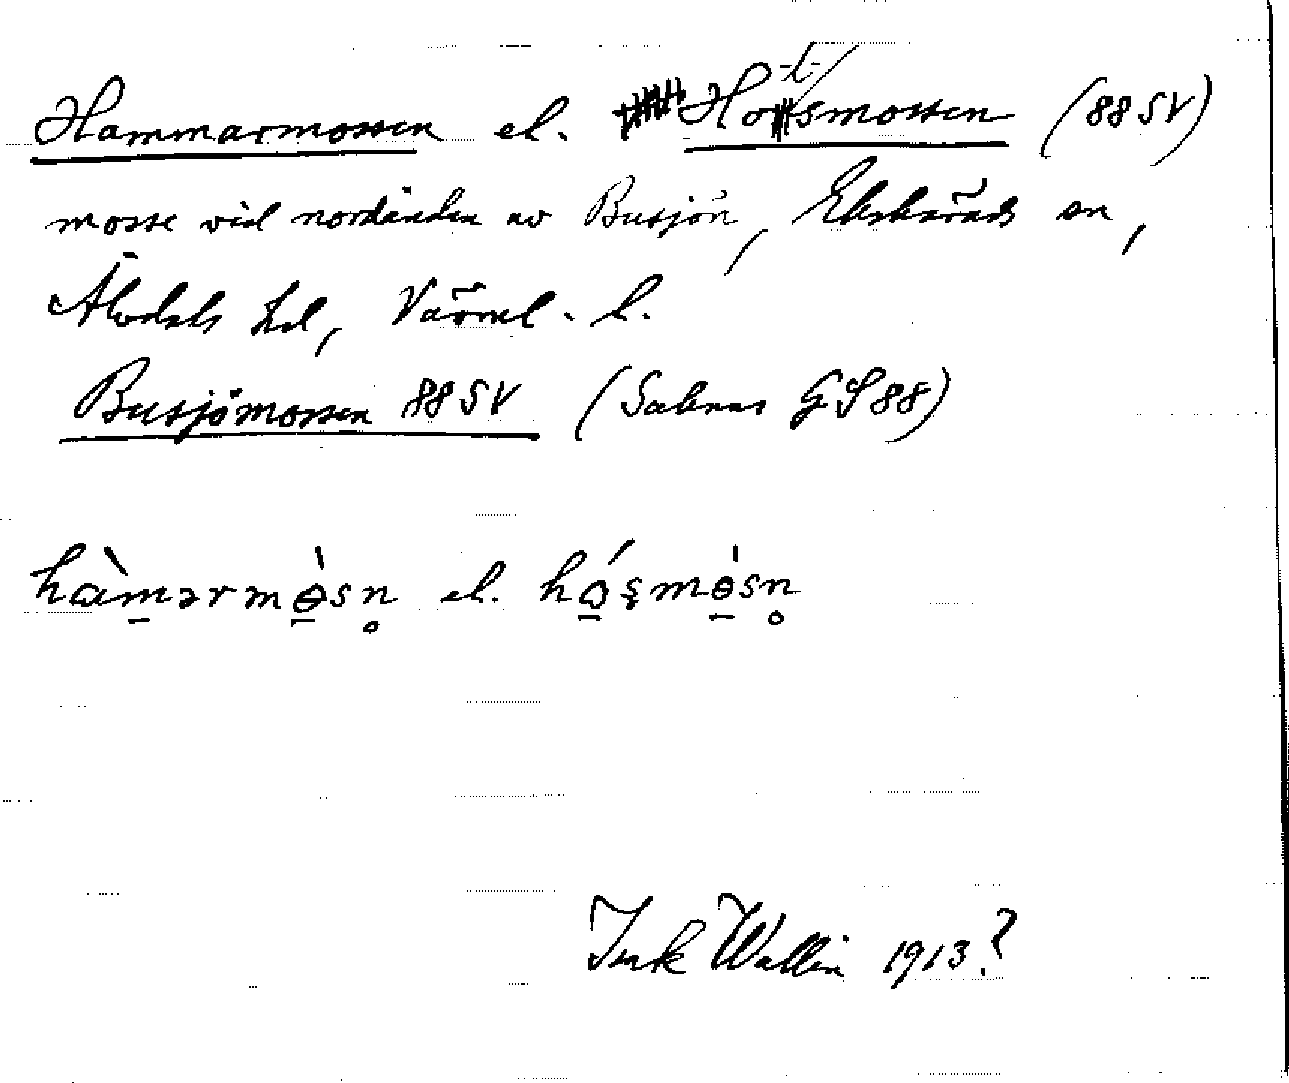 Hammarmossen el. Holsmossen (88 SV)
mosse vid nordänden av Busjön, Ekshärads sn,
Älvdals hd, Värml. l.
Busjömossen 88 SV (Saknas GS 88)
hàmərmɵ̀sn̥ el. hǫ́ʂmɵ̀sn̥
Wallin 1913?